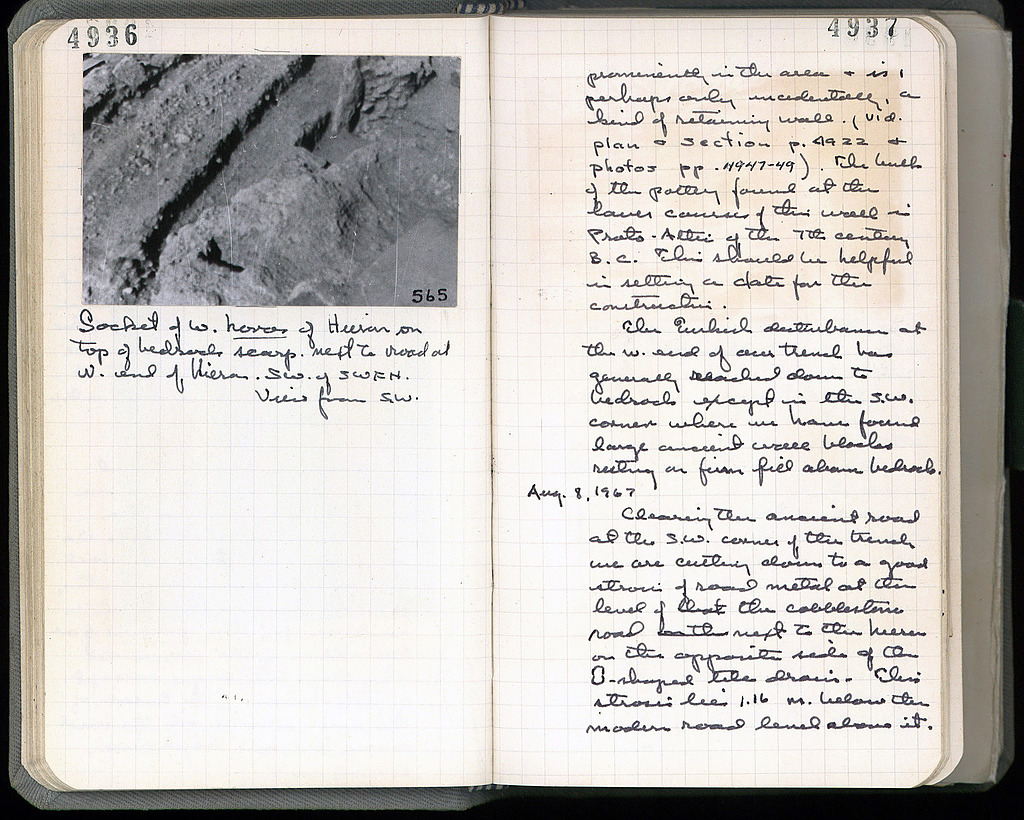 4936
565
Socket of W. horos of Hieron on
top of bedrock scarp. next to road at
W. end of Hieron. S.W. of SWFH.
View from S.W.
4937
prominently in the area & is,
perhaps only incidentally, a
kind of retaining wall. (vid.
plan & section p. 4922 &
photos pp. 4947-49). The bulk
of the pottery found at the
lower courses of this wall is
Proto-Attic of the 7th century
B.C. This should be helpful
in setting a date for the
construction.
The Turkish disturbance at
the w. end of our trench has
generally reached down to
bedrock except in the S.W.
corner where we have found
large ancient wall blocks
resting on firm fill above bedrock.
Aug. 8, 1967
Clearing the ancient road
at the S.W. corner of the trench
we are cutting down to a good
strosis of road metal at the
level of the cobblestone
road next to the hieron
on the opposite side of the
O-shaped tile drain. This
strosis lies 1.16 m. below the
modern road level above it.